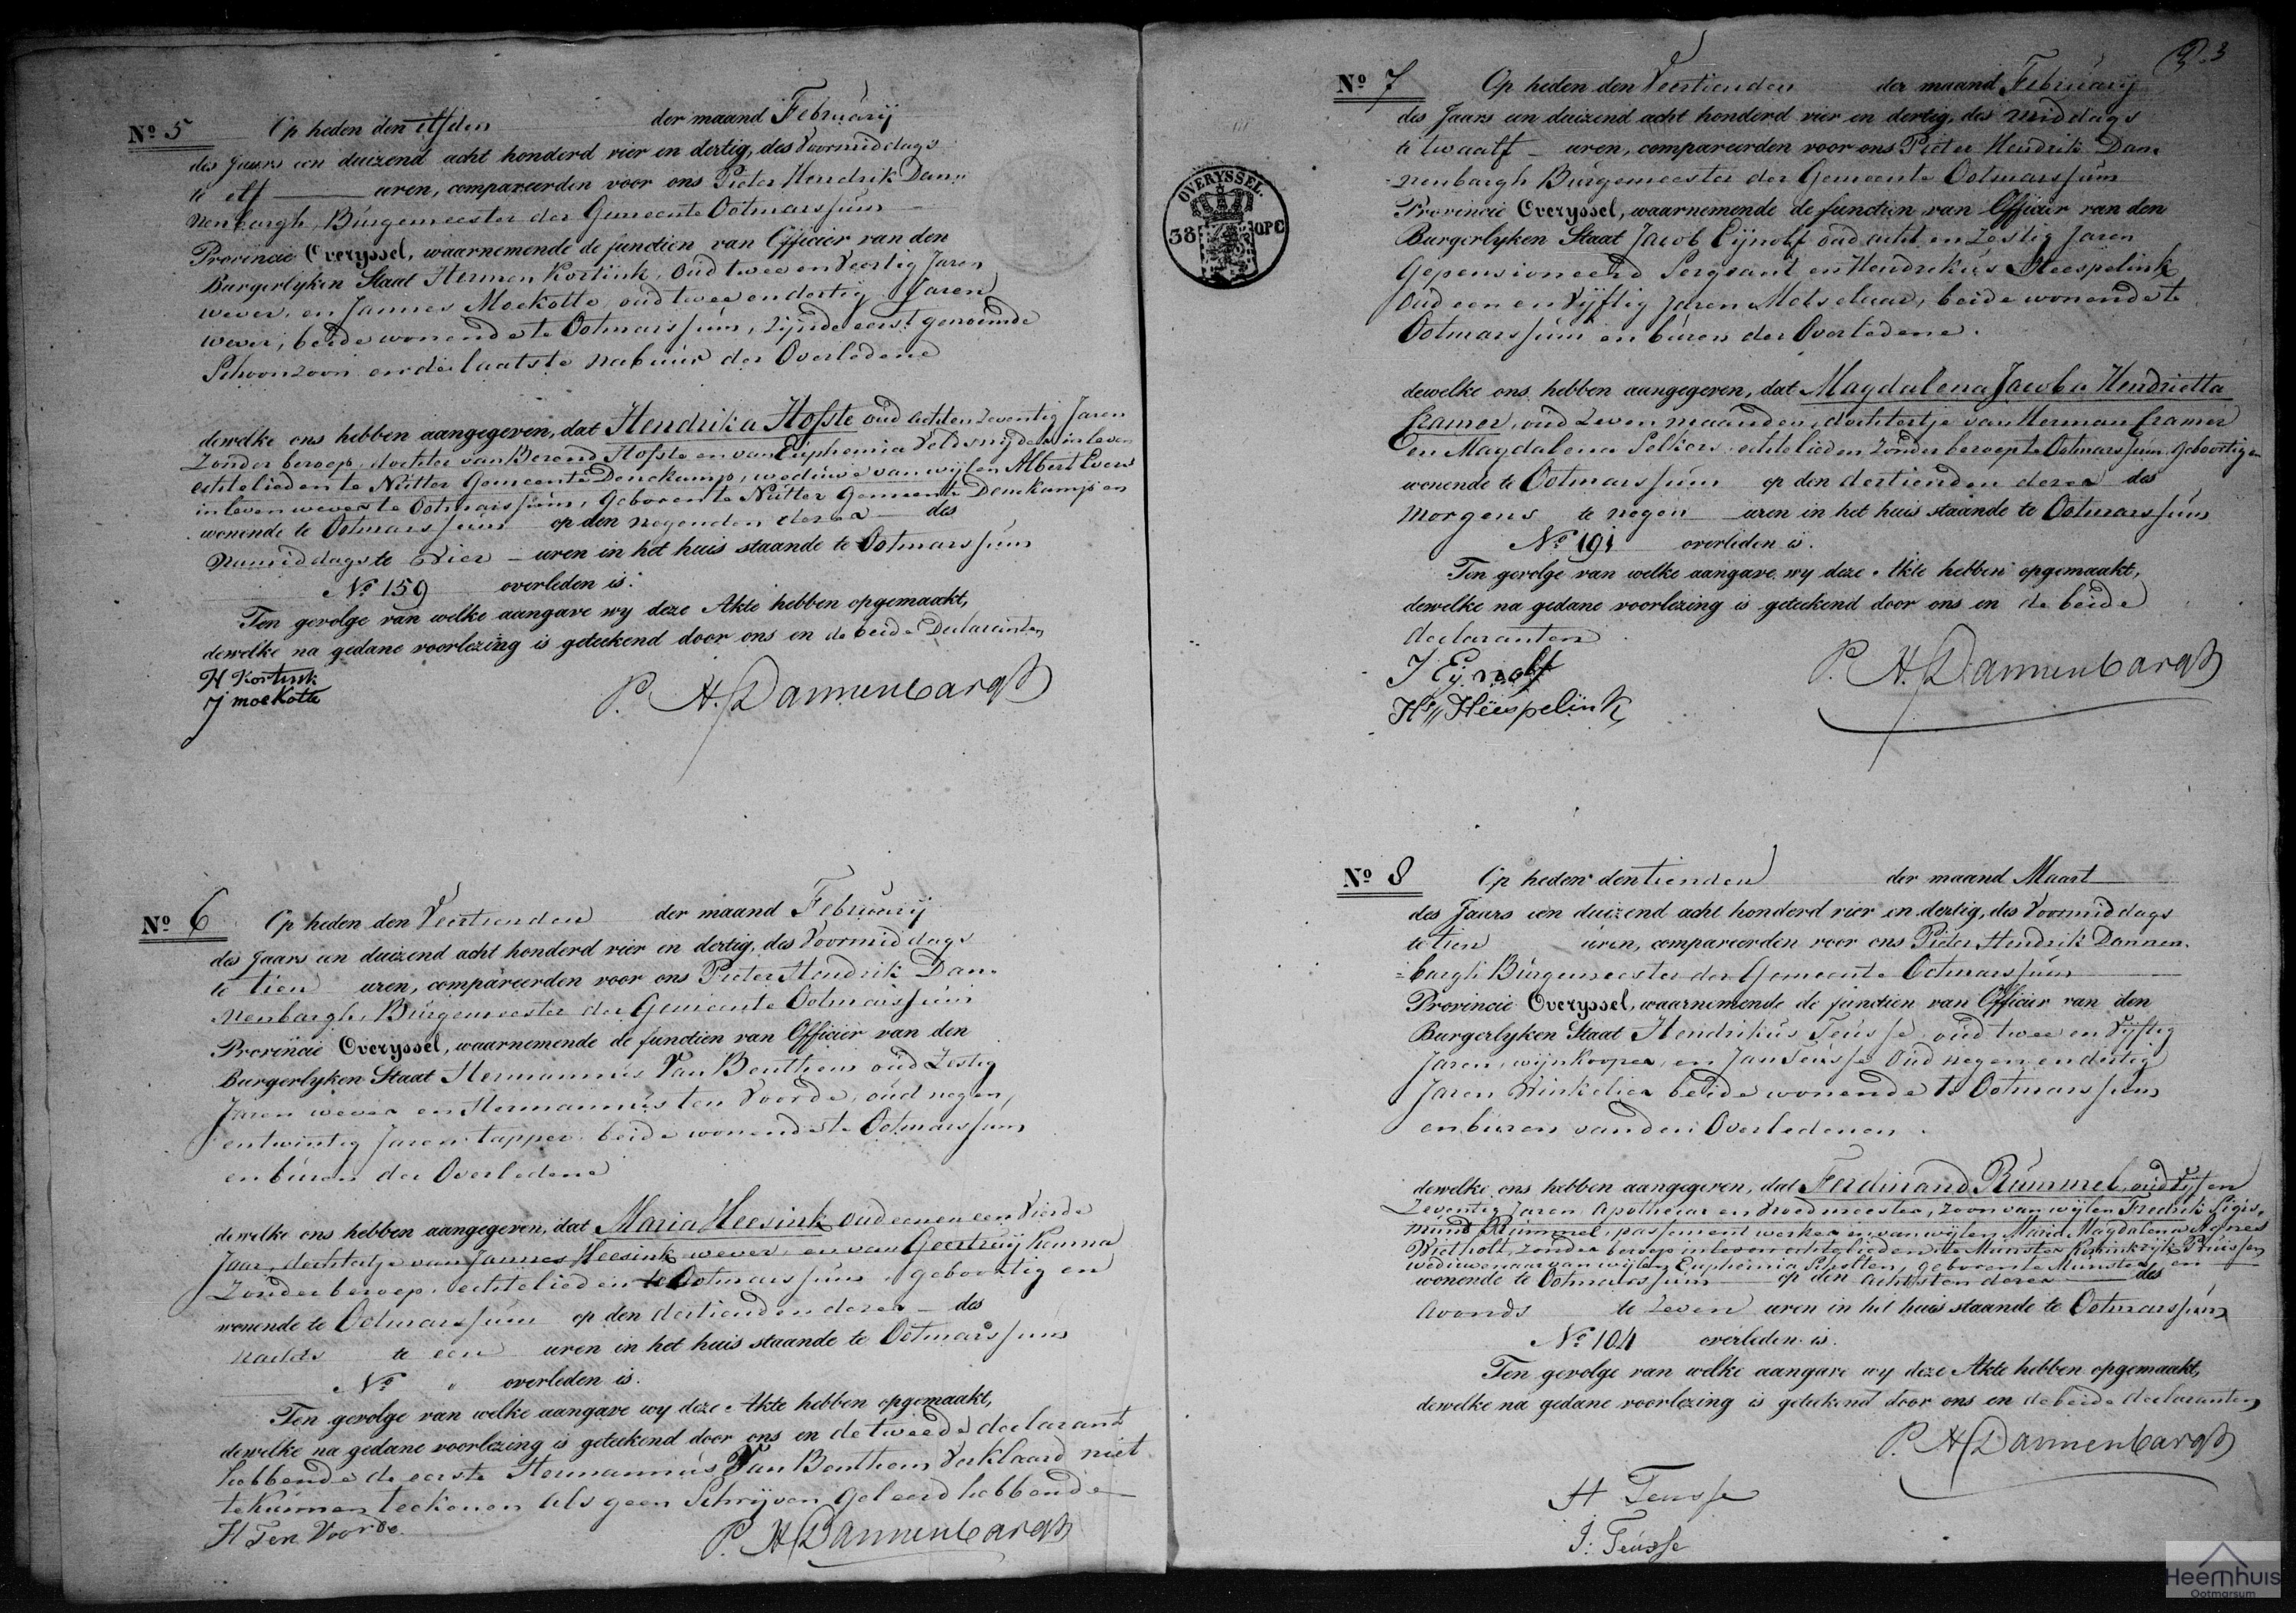 Nº 5 Op heden den elfden der maand Februarij
des Jaars een duizend acht honderd vier en dertig, des Voormiddags
te elf uren, compareerden voor ons Pieter Hendrik Dan-
nenbargh, Burgemeester der Gemeente Ootmarssum
Provincie Overyssel, waarnemende de functien van Officier van den
Burgerlyken Staat Hermen Kortink, oud twee en Veertig Jaren
wever, en Jannes Moekotte, oud twee en dertig Jaren
wever, beide wonende te Ootmarssum, zijnde eerst genoemde
Schoonzoon en de laatste nabuur der Overledene
dewelke ons hebben aangegeven, dat Hendrika Hofste oud acht en Zeventig Jaren
Zonder beroep, dochter van Berend Hofste en van Euphemia Veldsnijder in leven
echtelieden te Nutter Gemeente Denekamp, weduwe van wijlen Albert Evers
in leven wever te Ootmarssum, Geboren te Nutter Gemeente Denekamp en
wonende te Ootmarssum op den negenden dezer des
Namiddags te Vier uren in het huis staande te Ootmarssum
Nº 159 overleden is.
Ten gevolge van welke aangave wy deze Akte hebben opgemaakt,
dewelke na gedane voorlezing is geteekend door ons en de beide Declaranten
H Kortink
J moekotte
P. H. Dannenbargh
Nº 6 Op heden den Veertienden der maand Februarij
des Jaars een duizend acht honderd vier en dertig, des Voormiddags
te tien uren, compareerden voor ons Pieter Hendrik Dan-
nenbargh, Burgemeester der Gemeente Ootmarssum
Provincie Overyssel, waarnemende de functien van Officier van den
Burgerlyken Staat Hermannus Van Benthem oud Zestig
Jaren wever en Hermannus ten Voorde, oud negen
en twintig Jaren tapper beide wonende te Ootmarssum
en buren der Overledene
dewelke ons hebben aangegeven, dat Maria Heesink oud een en een Vierde
Jaar, dochtertje van Jannes Heesink wever en van Geertruij
Zonder beroep, echtelieden te Ootmarssum, geboortig en
wonende te Ootmarssum op den dertienden dezer des
Nachts te een uren in het huis staande te Ootmarssum
Nº " overleden is.
Ten gevolge van welke aangave wy deze Akte hebben opgemaakt,
dewelke na gedane voorlezing is geteekend door ons en de tweede declarant
hebbende de eerste Hermannus Van Benthem Verklaard niet
te kunnen teekenen als geen Schrijven geleerd hebbende
H Ten Voorde
P. H. Dannenbargh
3
OVERYSSEL.
38 OPC
Nº 7 Op heden den Veertienden der maand Februarij
des Jaars een duizend acht honderd vier en dertig, des middags
te twaalf uren, compareerden voor ons Pieter Hendrik Dan-
nenbargh Burgemeester der Gemeente Ootmarssum
Provincie Overyssel, waarnemende de functien van Officier van den
Burgerlyken Staat Jacob Eijnolf oud acht en Zestig Jaren
Gepensioneerd Sergeant en Hendrikus Heespelink
oud een en Vijftig Jaren Metselaar, beide wonende te
Ootmarssum en buren der Overledene.
dewelke ons hebben aangegeven, dat Magdalena Jacoba Hendrietta
Cramer, oud Zeven maanden, dochtertje van Herman Cramer
en Magdalena Selkers echtelieden Zonder beroep te Ootmarssum, Geboortig en
wonende te Ootmarssum op den dertienden dezer des
Morgens te negen uren in het huis staande te Ootmarssum
Nº 191 overleden is.
Ten gevolge van welke aangave wy deze Akte hebben opgemaakt,
dewelke na gedane voorlezing is geteekend door ons en de beide
declaranten
J Eijnolf
Hs Heespelink
P. H. Dannenbargh
Nº 8 Op heden den tienden der maand Maart
des Jaars een duizend acht honderd vier en dertig, des Voormiddags
te tien uren, compareerden voor ons Pieter Hendrik Dannen-
bargh Burgemeester der Gemeente Ootmarssum
Provincie Overyssel, waarnemende de functien van Officier van den
Burgerlyken Staat Hendrikus Teusse, oud twee en Vijftig
Jaren, wijnkooper, en Jan Teusse oud negen en dertig
Jaren Winkelier beide wonende te Ootmarssum
en buren van den Overledenen.
dewelke ons hebben aangegeven, dat Ferdinand Rummel, oud Vijf en
Zeventig Jaren Apothecar en Vroedmeester, Zoon van wijlen Fredrik Sigis-
mund Rummel, passement werker en van wijlen Maria Magdalena Agnes
Wietholt, Zonder beroep in leven echtelieden te Munster Koninkrijk Pruissen
weduwenaar van wijlen Euphemia Scholten, geboren te Munster, en
wonende te Ootmarssum op den achtsten dezer des
Avonds te Zeven uren in het huis staande te Ootmarssum
Nº 104 overleden is.
Ten gevolge van welke aangave wy deze Akte hebben opgemaakt,
dewelke na gedane voorlezing is geteekend door ons en de beide declaranten
P. H. Dannenbargh
H Teusse
J: Teusse
Heemhuis
Ootmarsum